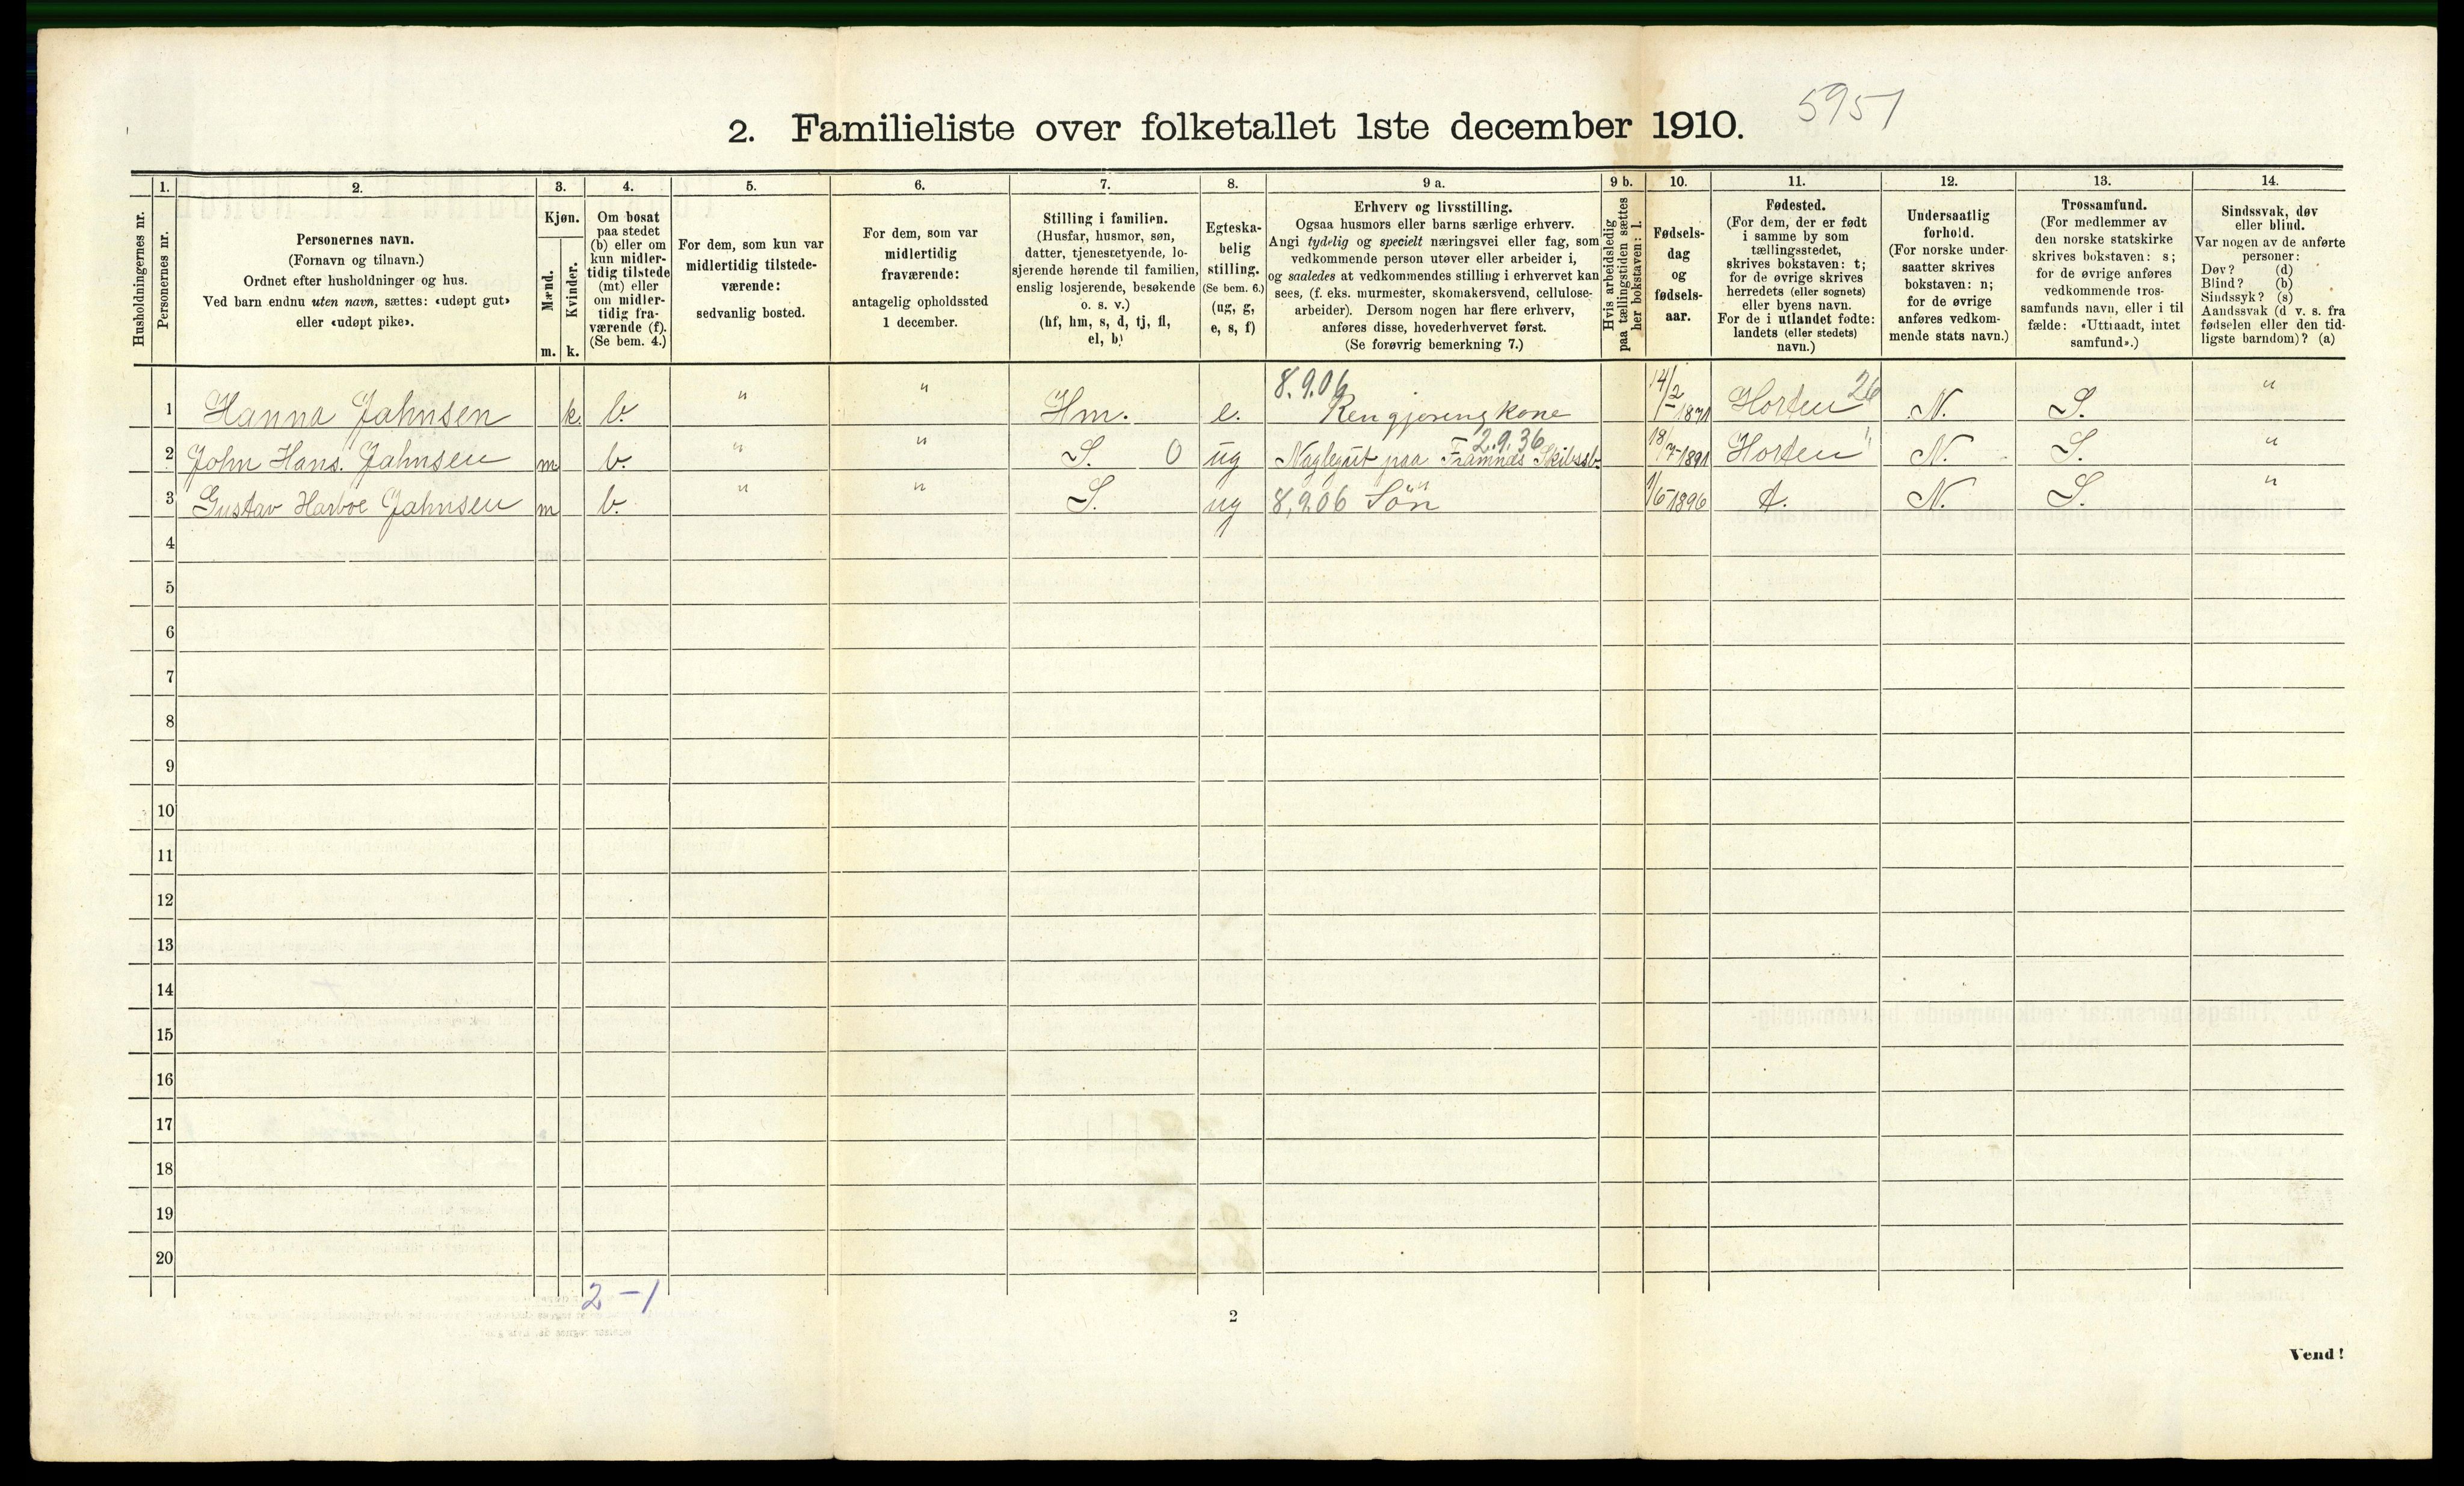 2. Familieliste over folketallet 1ste december 1910.
5951
Husholdningernes nr.
1.
Personernes nr.
2.
Personernes navn.
(Fornavn og tilnavn.)
Ordnet efter husholdninger og hus.
Ved barn endnu uten navn, sættes: «udøpt gut»
eller «udøpt pike».
3.
Kjøn.
Mænd.
m.
Kvinder.
k.
4.
Om bosat
paa stedet
(b) eller om
kun midler-
tidig tilstede
(mt) eller
om midler-
tidig fra-
værende (f).
(Se bem. 4.)
5.
For dem, som kun var
midlertidig tilstede-
værende:
sedvanlig bosted.
6.
For dem, som var
midlertidig
fraværende:
antagelig opholdssted
1 december.
7.
Stilling i familien.
(Husfar, husmor, søn,
datter, tjenestetyende, lo-
sjerende hørende til familien,
enslig losjerende, besøkende
o. s. v.)
(hf, hm, s, d, tj, fl,
el, b)
8.
Egteska-
belig
stilling.
(Se bem. 6.)
(ug, g,
e, s, f)
9 a.
Erhverv og livsstilling.
Ogsaa husmors eller barns særlige erhverv.
Angi tydelig og specielt næringsvei eller fag, som
vedkommende person utøver eller arbeider i,
og saaledes at vedkommendes stilling i erhvervet kan
sees, (f. eks. murmester, skomakersvend, cellulose-
arbeider). Dersom nogen har flere erhverv,
anføres disse, hovederhvervet først.
(Se forøvrig bemerkning 7.)
9 b.
Hvis arbeidsledig
paa tællingstiden sættes
her bokstaven: l.
10.
Fødsels-
dag
og
fødsels-
aar.
11.
Fødested.
(For dem, der er født
i samme by som
tællingsstedet,
skrives bokstaven: t;
for de øvrige skrives
herredets (eller sognets)
eller byens navn.
For de i utlandet fødte:
landets (eller stedets)
navn.)
12.
Undersaatlig
forhold.
(For norske under-
saatter skrives
bokstaven: n;
for de øvrige
anføres vedkom-
mende stats navn.)
13.
Trossamfund.
(For medlemmer av
den norske statskirke
skrives bokstaven: s;
for de øvrige anføres
vedkommende tros-
samfunds navn, eller i til
fælde: «Uttraadt, intet
samfund».)
14.
Sindssvak, døv
eller blind.
Var nogen av de anførte
personer:
Døv? (d)
Blind? (b)
Sindssyk? (s)
Aandssvak (d v. s. fra
fødselen eller den tid-
ligste barndom)? (a)
8.9.06
1 Hanna Jahnsen k. b. " " Hm. e. Rengjøringkone 14/2 1871 Horten 26 N. S. "
2.9.36
2 John Hans. Jahnsen m. b. " " S. 0 ug Naglegut paa Framnæs Skibssb. 18/7-1891 Horten " N. S. "
3 Gustav Harboe Jahnsen m b. " " S. ug 8,906 Sön 1/6-1896 t. N. S. "
4
5
6
7
8
9
10
11
12
13
14
15
16
17
18
19
20
2-1
2
Vend!